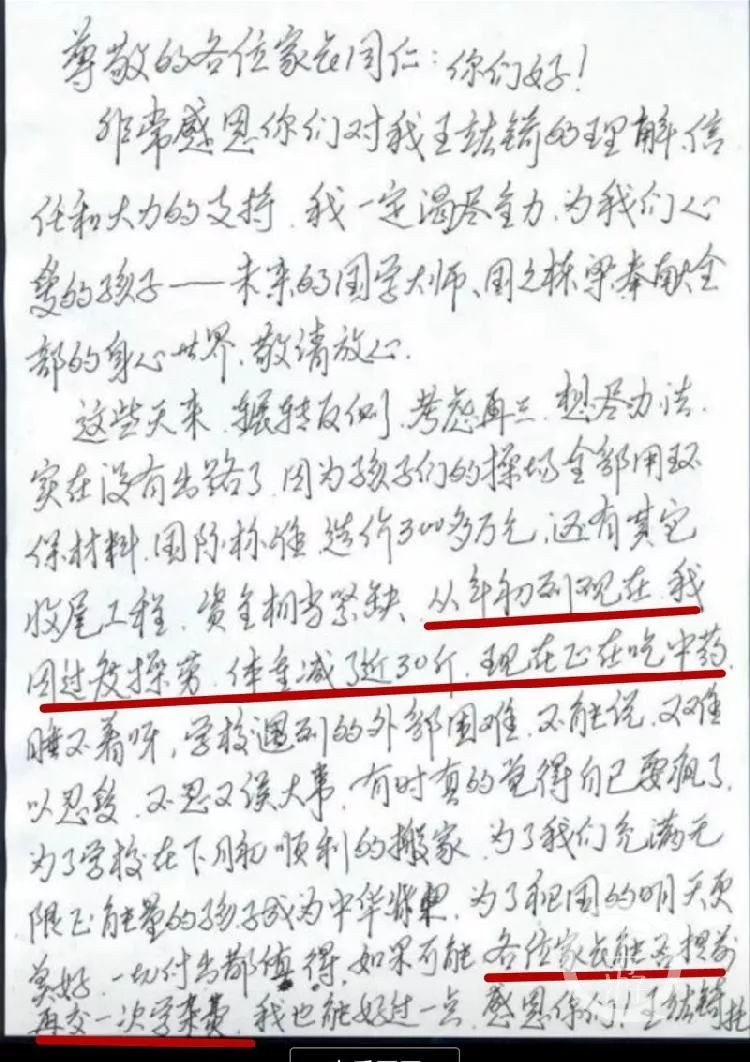 尊敬的各位家长同仁：你们好！
非常感恩你们对我王喆锜的理解、信
任和大力的支持。我一定竭尽全力，为我们心
爱的孩子——未来的国学大师、国之栋梁奉献全
部的身心世界，敬请放心。
这些天来，辗转反侧，考虑再三，想尽办法，
实在没有出路了，因为孩子们的操场全部用环
保材料，国际标准，造价300多万元，还有其它
收尾工程，资金相当紧缺，从年初到现在，我
因过度操劳，体重减了近30斤，现在正在吃中药，
睡不着呀，学校遇到的外部困难，不能说，又难
以忍受，不忍又误大事，有时真的觉得自己要疯了，
为了学校在下月初顺利的搬家，为了我们充满无
限正能量的孩子成为中华，为了祖国的明天更
美好，一切付出都值得，如果可能各位家长能否提前
再交一次学杂费，我也能好过一点，感恩你们！王喆锜